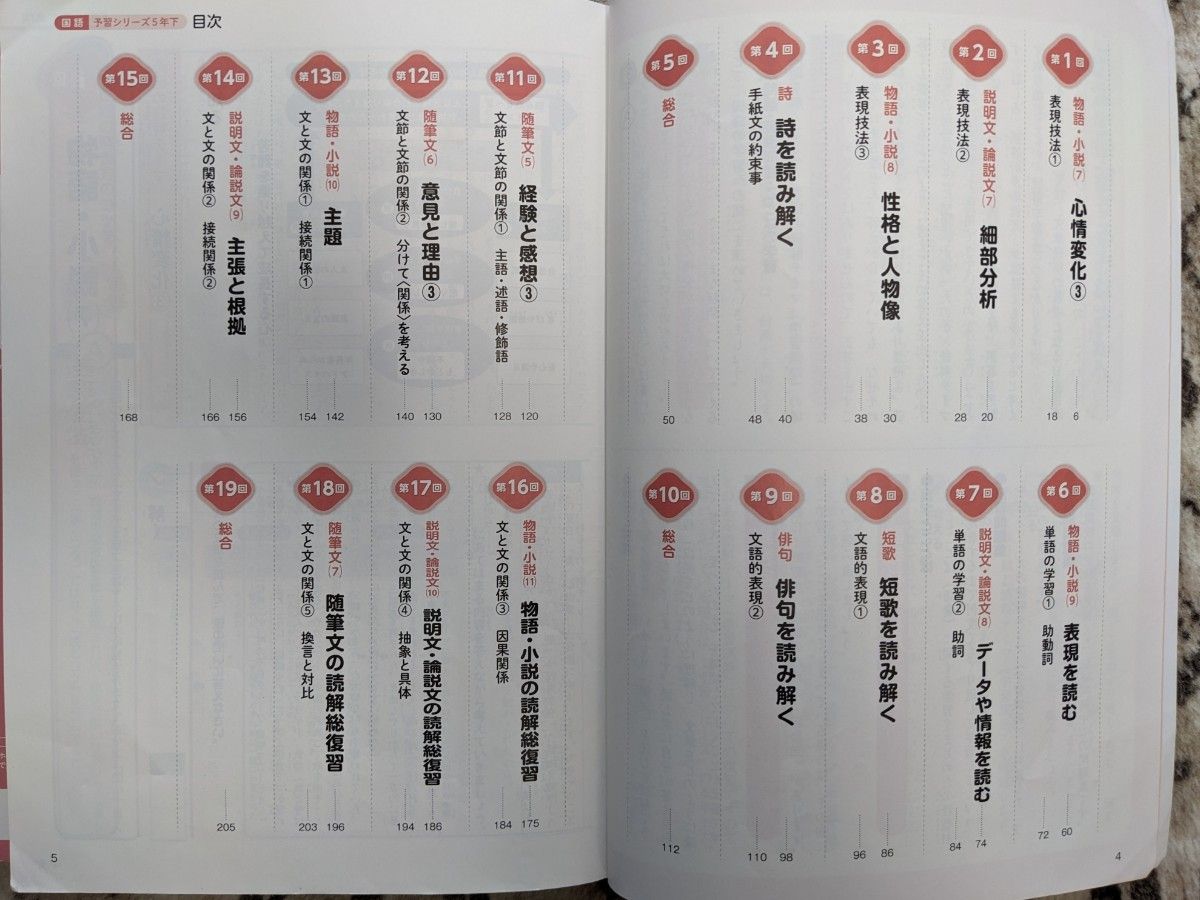 国語 予習シリーズ5年下 目次
第1回
物語・小説(7) 心情変化③ 6
表現技法① 18
第2回
説明文・論説文(7) 細部分析 20
表現技法② 28
第3回
物語・小説(8) 性格と人物像 30
表現技法③ 38
第4回
詩 詩を読み解く 40
手紙文の約束事 48
第5回
総合 50
第6回
物語・小説(9) 表現を読む 60
単語の学習① 助動詞 72
第7回
説明文・論説文(8) データや情報を読む 74
単語の学習② 助詞 84
第8回
短歌 短歌を読み解く 86
文語的表現① 96
第9回
俳句 俳句を読み解く 98
文語的表現② 110
第10回
総合 112
4
第11回
随筆文(5) 経験と感想③ 120
文節と文節の関係① 主語・述語・修飾語 128
第12回
随筆文(6) 意見と理由③ 130
文節と文節の関係② 分けて〈関係〉を考える 140
第13回
物語・小説(10) 主題 142
文と文の関係① 接続関係① 154
第14回
説明文・論説文(9) 主張と根拠 156
文と文の関係② 接続関係② 166
第15回
総合 168
第16回
物語・小説(11) 物語・小説の読解総復習 175
文と文の関係③ 因果関係 184
第17回
説明文・論説文(10) 説明文・論説文の読解総復習 186
文と文の関係④ 抽象と具体 194
第18回
随筆文(7) 随筆文の読解総復習 196
文と文の関係⑤ 換言と対比 203
第19回
総合 205
5